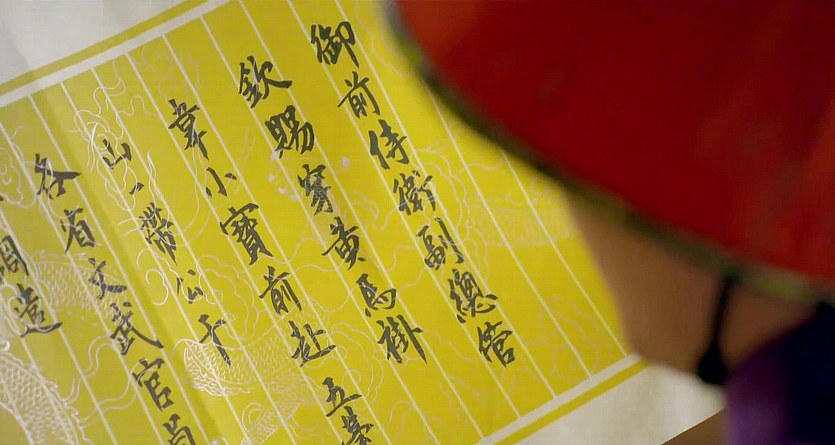 御前侍衛副總管
欽賜穿黃馬褂
韋小寶前赴五臺
山一帶公干
各省文武官員